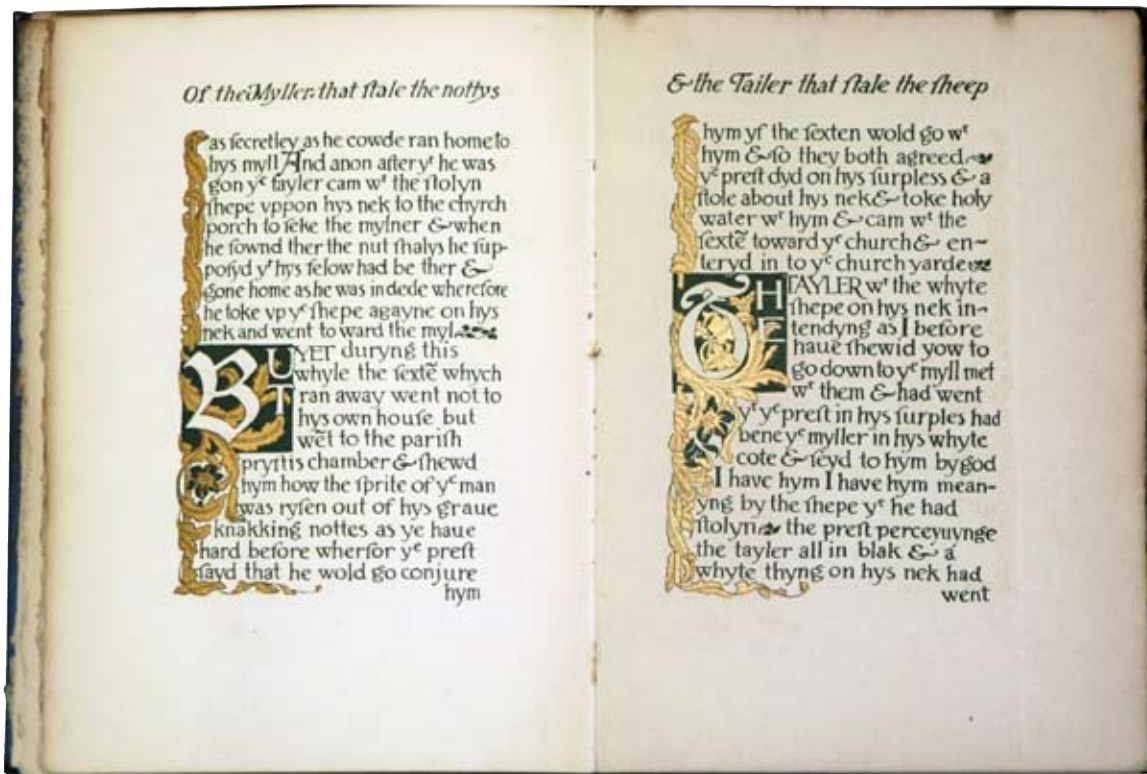 Of the Myller that ſtale the nottys
as ſecretley as he cowde ran home to
hys myll And anon after yᵗ he was
gon yᵉ tayler cam wᵗ the ſtolyn
ſhepe vppon hys nek to the chyrch
porch to ſeke the mylner & when
he fownd ther the nut ſhalys he ſup-
poſyd yᵗ hys felow had be ther &
gone home as he was in dede wherefore
he toke vp yᵉ ſhepe agayne on hys
nek and went to ward the myl
BUT YET duryng this
whyle the ſextẽ whych
ran away went not to
hys own houſe but
wẽt to the pariſh
pryſtis chamber & ſhewd
hym how the ſprite of yᵉ man
was ryſen out of hys graue
knakking nottes as ye haue
hard before wherfor yᵉ preſt
ſayd that he wold go conjure
hym
& the Tailer that ſtale the ſheep
hym yf the ſexten wold go wᵗ
hym & ſo they both agreed
yᵉ preſt dyd on hys ſurpleſs & a
ſtole about hys nek & toke holy
water wᵗ hym & cam wᵗ the
ſextẽ toward yᵉ church & en-
teryd in to yᵉ church yarde
THE TAYLER wᵗ the whyte
ſhepe on hys nek in-
tendyng as I before
haue ſhewid yow to
go down to yᵉ myll met
wᵗ them & had went
yᵗ yᵉ preſt in hys ſurples had
bene yᵉ myller in hys whyte
cote & ſeyd to hym by god
I have hym I have hym mean-
yng by the ſhepe yᵗ he had
ſtolyn the preſt perceyuynge
the tayler all in blak & a
whyte thyng on hys nek had
went